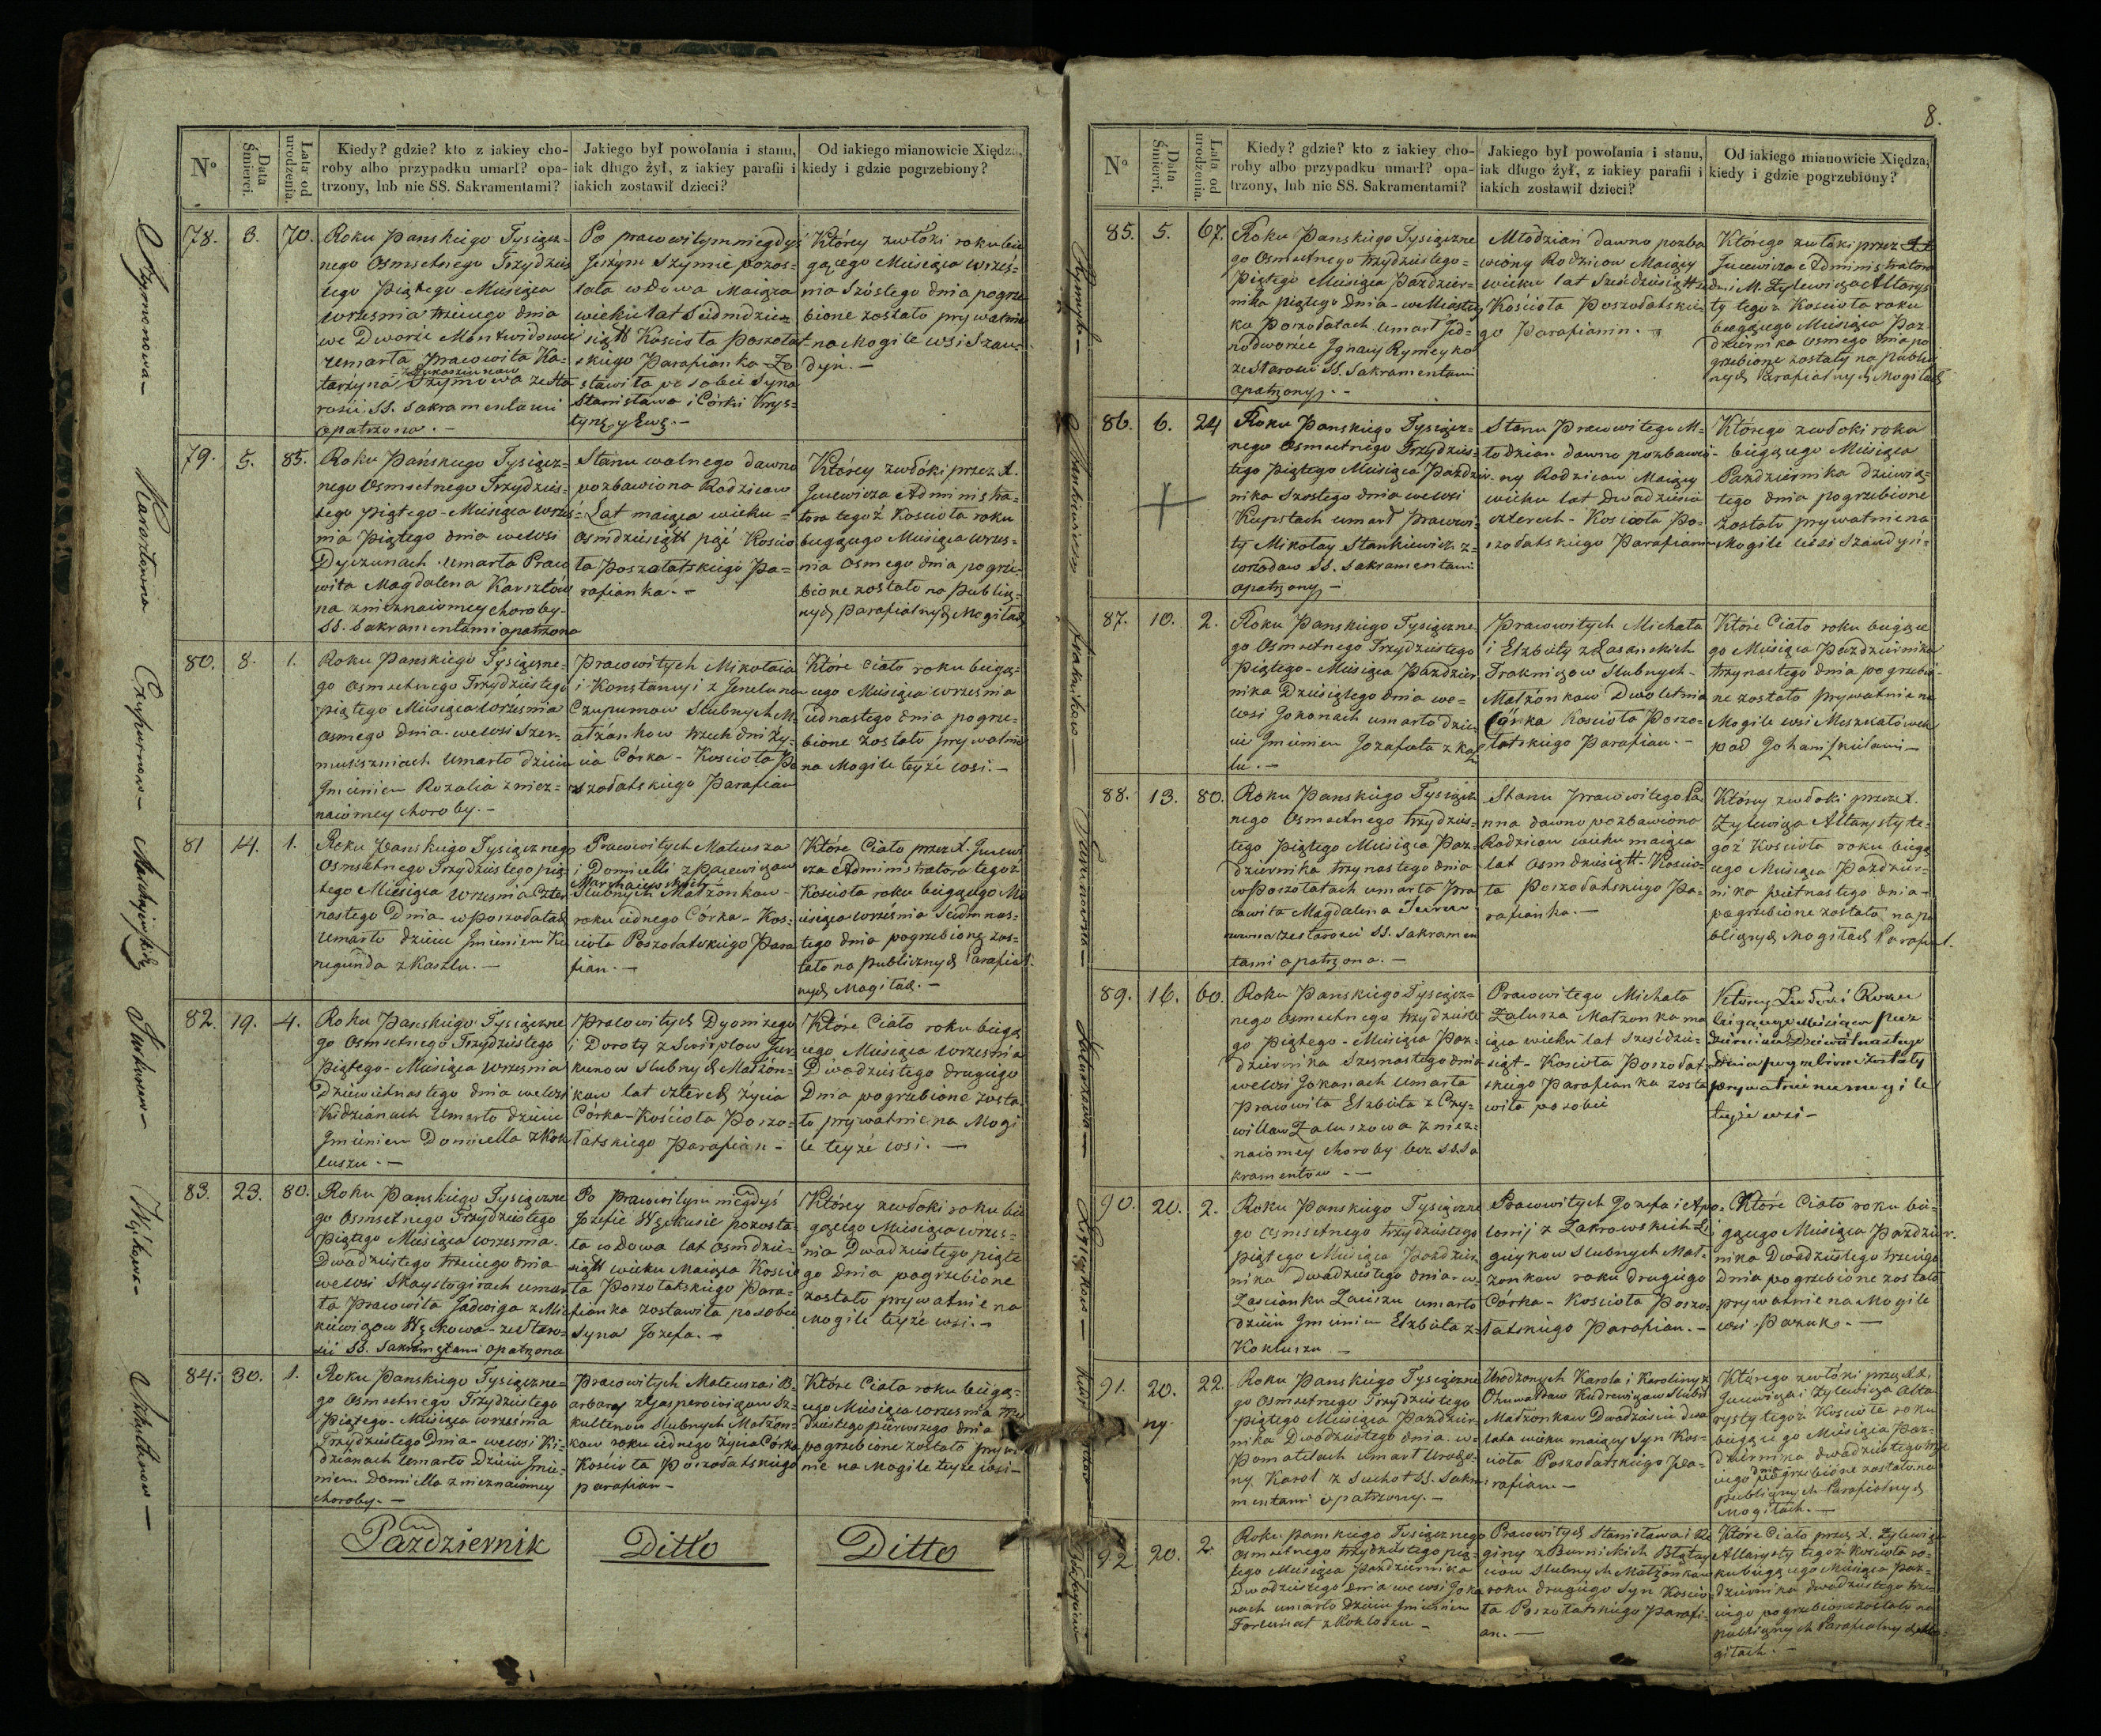 8.
Nº
Data Śmierci.
Lata od urodzenia.
Kiedy? gdzie? kto z iakiey cho-
roby albo przypadku umarł? opa-
trzony, lub nie SS. Sakramentami?
Jakiego był powołania i stanu,
iak długo żył, z iakiey parafii i
iakich zostawił dzieci?
Od iakiego mianowicie Xiędza,
kiedy i gdzie pogrzebiony?
78. 3. 70.
Roku Panskiego Tysiącz-
nego Osmsetnego Trzydzies
tego Piątego Miesiąca
Września trzeciego dnia
we Dworze Montwidowie
zemarła Pracowita Ka-
tarzyna Szymowa ze sta
rości SS. Sakramentami
opatrzona. -
Po pracowitym niegdyś
Jerzym Szymie pozos-
tała wdowa Maiąca
wieku lat Siedmdzie-
siątt Kościoła Poszołat
skiego Parafianka Zo
stawiła po sobie Syna
Stanisława i Córki Krys-
tynę y Ewę. -
Którey zwłóki roku bie
gącego Miesiąca Wrześ-
nia Szóstego dnia pogrze
bione zostało prywatnie
na Mogile wsi Szau-
dyń. -
79. 5. 85.
Roku Pańskiego Tysiącz-
nego Osmsetnego Trzydzies-
tego Piątego - Miesiąca Wrześ-
nia Piątego dnia we wsi
Dyrzunach umarła Praco
wita Magdalena Karsztów
na z nieznaiomey choroby.
SS. Sakramentami opatrzona
Stanu wolnego dawno
pozbawiona Rodzicow
Lat maiąca wieku =
Osmdziesiątt pięć Koscio
ła Poszołatskiego Pa-
rafianka. -
Którey zwłóki przez X.
Jucewicza Administra-
tora tegoż Kościoła roku
biegącego Miesiąca Wrześ-
nia Osmego dnia pogrze-
bione zostało na Public-
nych Parafialnych Mogiłach
80. 8. 1.
Roku Panskiego Tysiączne-
go Osmsetnego Trzydziestego
piątego Miesiąca Września
Osmego dnia we wsi Szer-
muksznach umarło dziecie
Imieniem Rozalia z niez-
naiomey choroby. -
Pracowitych Mikołaia
i Konstancyi z
Czupurnow Slubnych M-
ałżonkow trzech dni ży-
cia Córka - Kościoła Po
szołatskiego Parafian
Które ciało roku biegą-
cego Miesiąca Września
iednastego dnia pogrze-
bione zostało prywatnie
na Mogile teyże wsi. -
81 14. 1.
Roku Panskiego Tysiącznego
Osmsetnego Trzydziestego pią-
tego Miesiąca Września Czter-
nastego Dnia - w Poszołatach
Umarło dziecie Imieniem Ku
negunda z Kaszlu. -
Pracowitych Mateusza
i Domicelli z
Slubnych Małżonkow -
roku iednego Córka - Koś-
cioła Poszołatskiego Para
fian. -
Które Ciało przez X. Jucewi
cza Administratora tegoż
Kościoła roku biegącego Mi-
esiąca Września Siedmnas-
tego dnia pogrzebione zos-
tało na Publicznych Parafial-
nych Mogiłach. -
82. 19. 4.
Roku Pańskiego Tysiączne
go Osmsetnego Trzydziestego
Piątego - Miesiąca Września
Dziewietnastego dnia we wsi
Kidzianach Umarło dziecie
Imieniem Domicella z Kok
luszu. -
Pracowitych Dyonizego
i Doroty z
Slubnych Małżon-
kow lat czterech życia
Córka - Kościoła Poszo-
łatskiego Parafian -
Które Ciało roku biegą
cego Miesiąca Września
Dwadziestego drugiego
Dnia pogrzebione zosta
ło prywatnie na Mogi
le teyże wsi. -
83. 23. 80.
Roku Pańskiego Tysiączne
go Osmsetnego Trzydziestego
Piątego Miesiąca Września.
Dwadziestego trzeciego dnia
we wsi Skaystogirach umar
ła Pracowita Jadwiga z Mic
kiewiczow ze Staro-
ści SS. Sakramentami opatrzona
Po Pracowitym niegdyś
Jozefie pozosta-
ła wdowa lat Osmdzie-
siątt wieku Maiąca Koscio
ła Poszołatskiego Para-
fianka zostawiła po sobie
Syna Jozefa. -
Którey zwłoki roku bie
gącego Miesiąca Wrześ-
nia Dwadziestego piąte
go Dnia pogrzebione
zostało prywatnie na
Mogile teyże wsi. -
84. 30. 1.
Roku Panskiego Tysiączne-
go Osmsetnego Trzydziestego
Piątego - Miesiąca Września
Trzydziestego Dnia - we wsi Ki-
dzianach Umarło Dziecie Imie-
niem Domicella z nieznaiomey
choroby. -
Pracowitych Mateusza i B-
arbary z Gasperowiczow
Slubnych Małżon-
kow roku iednego życia Córka
Kościoła Poszołatskiego
parafian -
Które Ciało roku biegą-
cego Miesiąca Września Trzy
dziestego pierwszego dnia
pogrzebione zostało prywat
nie na Mogile teyże wsi -
Październik
Ditto
Ditto
Nº
Data Śmierci.
Lata od urodzenia.
Kiedy? gdzie? kto z iakiey cho-
roby albo przypadku umarł? opa-
trzony, lub nie SS. Sakramentami?
Jakiego był powołania i stanu,
iak długo żył, z iakiey parafii i
iakich zostawił dzieci?
Od iakiego mianowicie Xiędza,
kiedy i gdzie pogrzebiony?
85. 5. 67.
Roku Panskiego Tysiączne
go Osmsetnego trzydziestego -
Piątego Miesiąca Paździer-
nika piątego dnia - w Miastecz
ku Poszołatach Umarł Jed-
nodworiec Ignacy Rymeyko
ze Starości SS. Sakramentami
Opatrzony. -
Młodzian dawno pozba
wiony Rodzicow Maiący
wieku lat Sześdziesiątt siedm
Kościoła Poszołatskie-
go Parafianin. -
Którego zwłoki przez XX
Jucewicza Administratora
i M. Żylewicza Altarys
ty tegoż Kościoła roku
biegącego Miesiąca Paź
dziernika Osmego dnia po
grzebione zostały na Public
nych Parafialnych Mogiłach
86. 6. 24
Roku Panskiego Tysiącz-
nego Osmsetnego Trzydzies-
tego Piątego Miesiąca Paździer
nika Szóstego dnia we wsi
Kupstach umarł Pracowi-
ty Mikołay Stankiewicz z
wrzodow SS. Sakramentami
opatrzony -
Stanu Pracowitego M-
łodzian dawno pozbawio-
ny Rodzicow Maiący
wieku lat Dwadzieścia
czterech - Kościoła Po-
szołatskiego Parafianin
Którego zwłoki roku
biegącego Miesiąca
Października dziewią-
tego dnia pogrzebione
zostało prywatnie na
Mogile wsi
87. 10. 2.
Roku Panskiego Tysiączne
go Osmsetnego Trzydziestego
Piątego - Miesiąca Paździer
nika Dziesiątego dnia we -
wsi Jokanach umarło dzie-
cie Imieniem Jozafata z Kasz
lu. -
Pracowitych Michała
i Elzbiety z
Slubnych -
Małżonkow Dwoletnia
Córka Kościoła Poszo-
łatskiego Parafian. -
Które Ciało roku biegące
go Miesiąca Października
trzynastego dnia pogrzebio-
ne zostało prywatnie na
Mogile wsi
pod
88. 13. 80.
Roku Panskiego Tysiącz
nego Osmsetnego trzydzies-
tego Piątego Miesiąca Paź-
dziernika trzynastego dnia
w Poszołatach umarła Pra
cowita Magdalena
ze starości SS. Sakramen
tami opatrzona. -
Stanu pracowitego Pa-
nna dawno pozbawiona
Rodzicow wieku maiąca
lat Osmdziesiątt - Koscio-
ła Poszołatskiego Pa-
rafianka. -
Którey zwłoki przez X.
Żylewicza Altarysty te-
goż Kościoła roku biegą
cego Miesiąca Paździer-
nika piętnastego dnia -
pogrzebione zostało na pu
blicznych Mogiłach Parafial.
89. 16. 60.
Roku Panskiego Tysiącz-
nego Osmsetnego trzydzieste
go Piątego - Miesiąca Paź-
dziernika Szesnastego dnia
we wsi Jokanach Umarła
Pracowita Elzbieta z Czy-
willow Załuszowa z niez-
naiomey choroby bez SS. Sa
kramentow. -
Pracowitego Michała
Załusza Małżonka ma
iąca wieku lat Sześćdzie-
siąt - Kościoła Poszołat
skiego Parafianka zosta
wiła po sobie
Którey Zwłoki Roku
biegącego Miesiąca Paz
dziernika Dziewietnastego
Dnia pogrzebione zostały
prywatnie na mogile
teyże wsi -
90. 20. 2.
Roku Panskiego Tysiączne
go Osmsetnego trzydziestego
piątego Miesiąca Paździer
nika Dwadziestego dnia - w
Zascianku Zaciszu umarło
Dziecie Imieniem Elzbieta z
Kokluszu -
Pracowitych Jozefa i Apo-
lonij z Zakrowskich
Slubnych Mał-
żonkow roku drugiego
Córka - Kościoła Poszo
łatskiego Parafian. -
Które Ciało roku bie-
gącego Miesiąca Paździer.
nika Dwadziestego trzeciego
Dnia pogrzebione zostało
prywatnie na Mogile
wsi
91. 20. 22.
Roku Panskiego Tysiączne
go Osmsetnego Trzydziestego
piątego Miesiąca Paździer-
nika Dwadziestego dnia. w
umarł Urodzo-
ny Karol z Suchot SS. Sakra
mentami opatrzony. -
Urodzonych Karola i Karoliny z
Kudrewiczow Slubn
Małżonkow Dwadzieścia dwa
lata wieku maiący Syn Koś-
cioła Poszołatskiego Pa-
rafian -
Którego zwłóki przez XX.
Jucewicza i Żylewicza Alta
rysty tegoż Kościoła roku
biegącego Miesiąca Paź-
dziernika dwadziestego trze
ciego dnia pogrzebione zostało na
publicznych Parafialnych
Mogiłach. -
92 20. 2
Roku Panskiego Tysiącznego
Osmsetnego trzydziestego pią-
tego Miesiąca Października
Dwadziestego dnia we wsi Joka
nach umarło dziecie Imieniem
Fortunat z Kokluszu -
Pracowitych Stanisława i Re
giny z Burnickich
Slubnych Małżonkow
roku drugiego Syn Koscio
ła Poszołatskiego Parafi-
an. -
Które Ciało przez X. Żylewicza
Altarysty tegoż Kościoła ro-
ku biegącego Miesiąca Paź-
dziernika dwadziestego trze-
ciego pogrzebione zostało na
publicznych Parafialnych Mo-
giłach. -